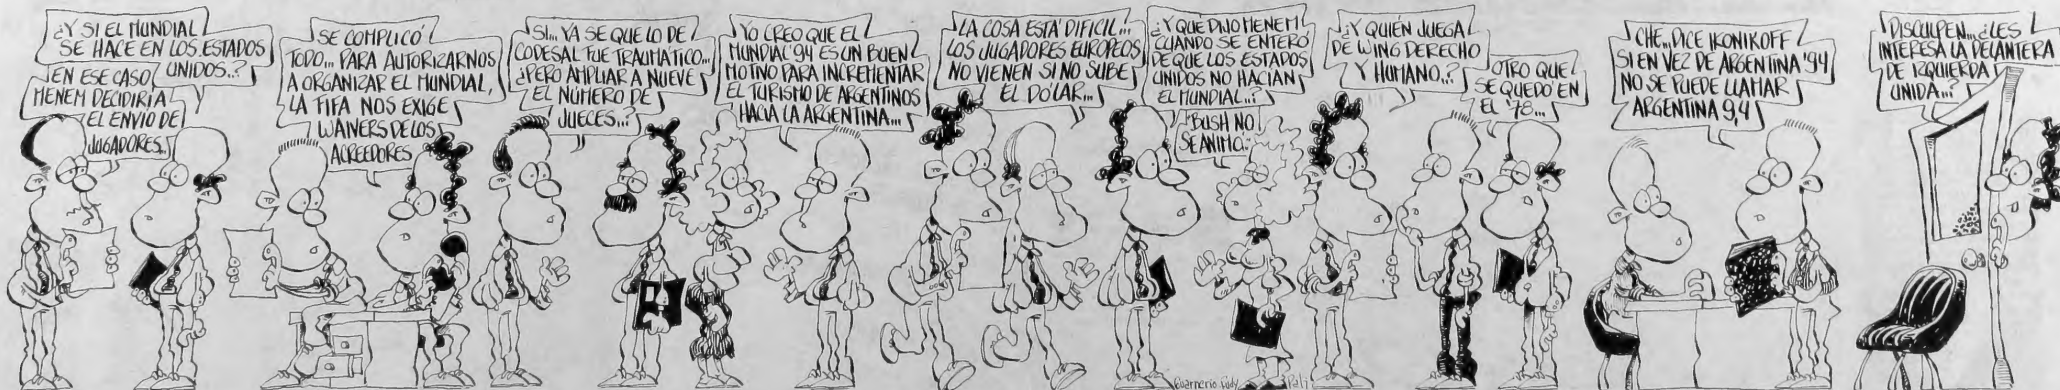 ¿Y SI EL MUNDIAL
SE HACE EN LOS ESTADOS
UNIDOS..?
¡EN ESE CASO
MENEM DECIDIRIA
EL ENVIO DE
JUGADORES..!
SE COMPLICÓ
TODO... PARA AUTORIZARNOS
A ORGANIZAR EL MUNDIAL,
LA FIFA NOS EXIGE
WAIVERS DE LOS
ACREEDORES
SI... YA SE QUE LO DE
CODESAL FUE TRAUMÁTICO...
¿PERO AMPLIAR A NUEVE
EL NÚMERO DE
JUECES..?
YO CREO QUE EL
MUNDIAL '94 ES UN BUEN
MOTIVO PARA INCREMENTAR
EL TURISMO DE ARGENTINOS
HACIA LA ARGENTINA...
LA COSA ESTÁ DIFICIL...
LOS JUGADORES EUROPEOS
NO VIENEN SI NO SUBE
EL DÓLAR...
¿Y QUE DIJO MENEM
CUANDO SE ENTERÓ
DE QUE LOS ESTADOS
UNIDOS NO HACIAN
EL MUNDIAL..?
"BUSH NO
SE ANIMO."
¿Y QUIÉN JUEGA
DE WING DERECHO
Y HUMANO..?
OTRO QUE
SE QUEDÓ EN
EL '78...
CHE... DICE IKONIKOFF
SI EN VEZ DE ARGENTINA '94
NO SE PUEDE LLAMAR
ARGENTINA 9,4
DISCULPEN... ¿LES
INTERESA LA DELANTERA
DE IZQUIERDA
UNIDA..?
Guarnerio. Rudy
Pati